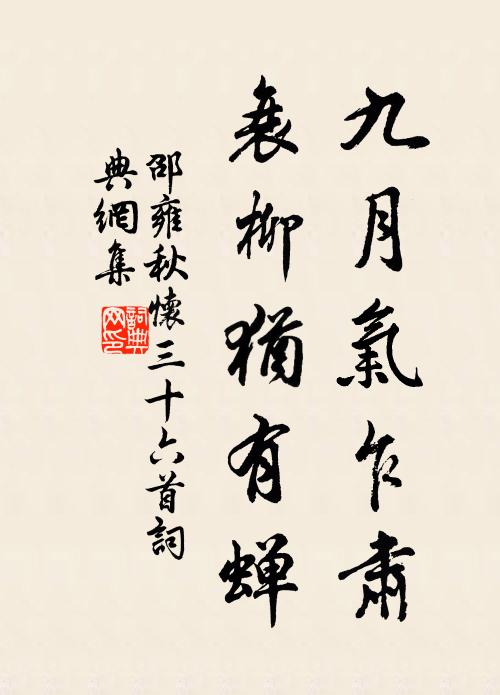 九月氣乍肅
衰柳猶有蟬
邵雍秋懷三十六首詞
典網集
詞典
网印